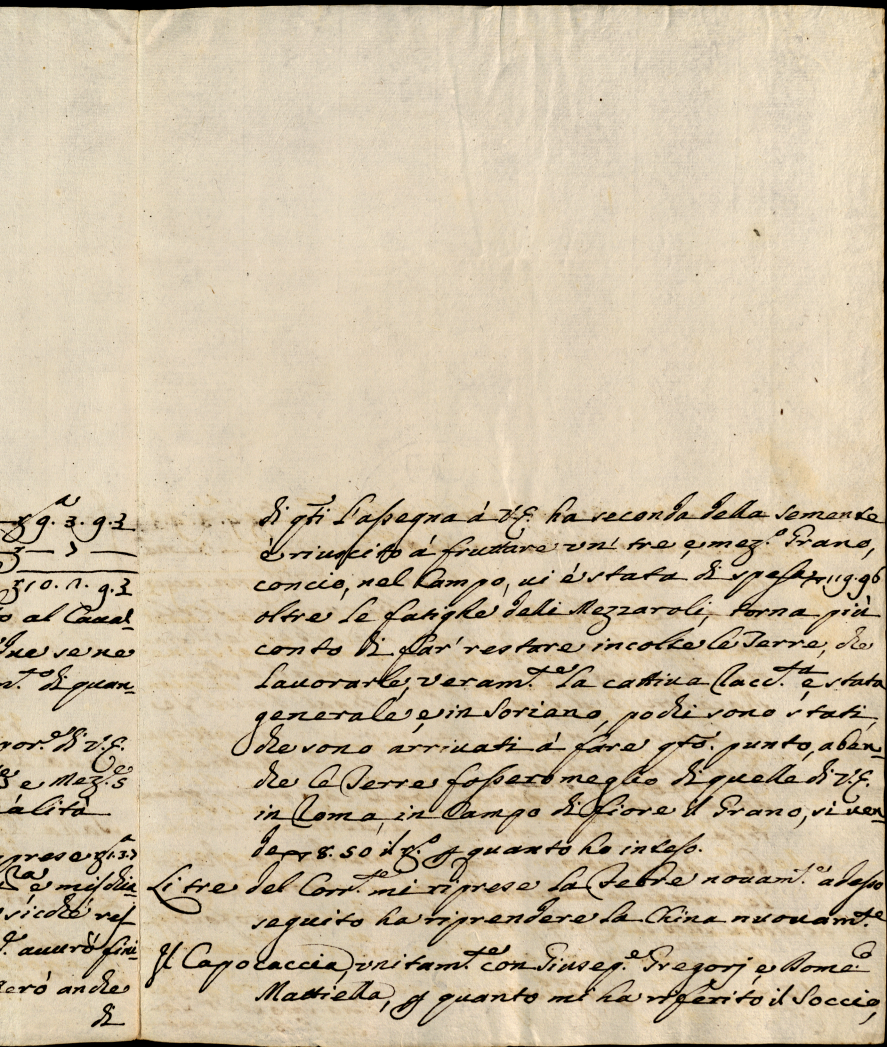 9. 3. 9. 3
10. 2. 9. 3
o al Caval-
due se ne
m.to di quan-
por.e di V.E.
e Mez.e 5
alità
prese
è misdia
sicche res
avverò fini-
però anche
di
di q.ti l'assegna á V.E. ha seconda della semense
è riuscito á fruttare un' tre e mez.o Grano,
concio, nel Campo, ui é stata di spesa 19.96
oltre le fatighe delli Mezzaroli, torna più
conto di far' restare incolte le Terre, che
lauorarle, veram.te la cattiua Racc.ta è stata
generale e in Soriano, pochi sono stati,
che sono arriuati á fare q.to punto, aben-
che le Terre fossero meglio di quelle di V.E.
in Roma in Campo di fiore il Grano, si uen-
de 8.50 il quanto ho inteso.
Li tre del Corr.te mi riprese la Febre nouam.e adesso
seguito ha riprendere la China nuouam.te
Il Capocaccia unitam.te con Giusep.e Gregorj e Dome.co
Mattiella, quanto mi ha riferito il Soccio,